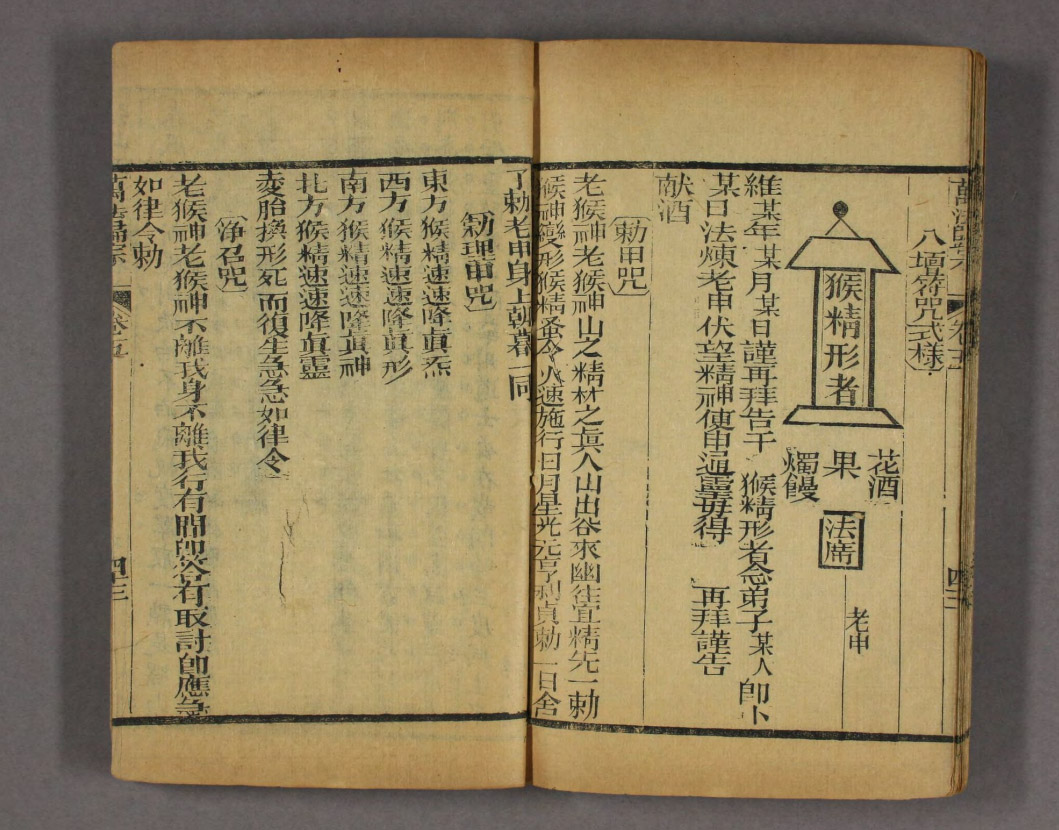 八壇符咒式樣
猴精形者
花酒
果
燭饅
法席
老申
維某年某月某日謹再拜告于 猴精形者念弟子某人卽卜
某日法煉老申伏望精神便申通靈毋得 再拜謹告
献酒
勅甲咒
老猴神老猴神山之精林之眞人山出谷來幽往宜精先一勅
猴神變形猴精蚤令火速施行日月星光元亨利貞勅一日舍
了勅老申身上朝暮一同
勅理申咒
東方猴精速速降眞炁
西方猴精速速降眞形
南方猴精速速降眞神
北方猴精速速降眞靈
変胎換形死而復生急急如律令
净召咒
老猴神老猴神不離我身不離我行有問卽答有取討卽應急
如律令勅
卷五
四十三